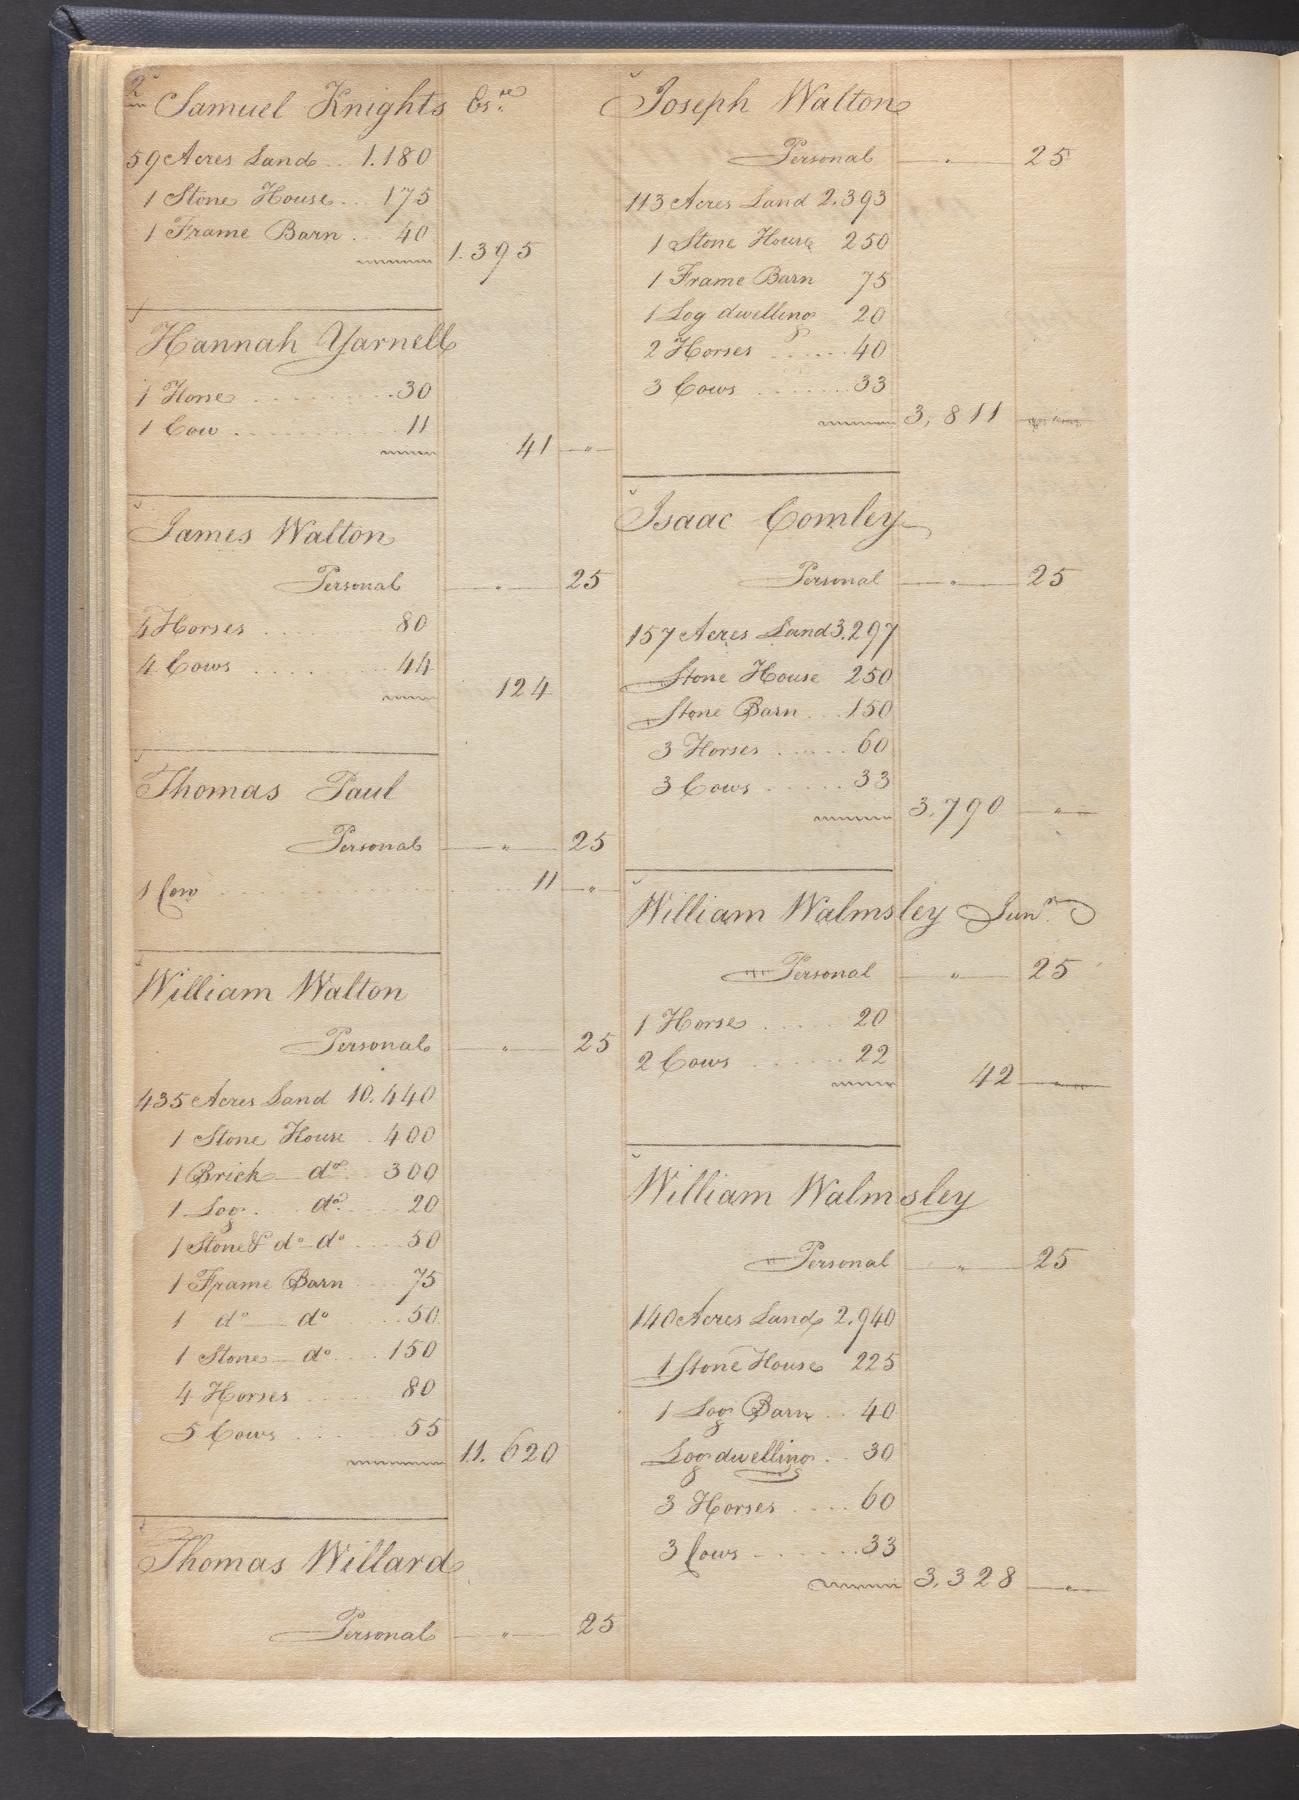 2
Samuel Knights Es.re
59 Acres Land .. 1.180
1 Stone House ... 175
1 Frame Barn ... 40
1.395
Hannah Yarnell
1 Horse .......... 30
1 Cow .......... 11
41 — " —
James Walton
Personal — " — 25
4 Horses .......... 80
4 Cows .... .. 44
124
Thomas Paul
Personal — " — 25
1 Cow .......... 11 — " —
William Walton
Personal — " — 25
435 Acres Land 10.440
1 Stone House . 400
1 Brick — do .. 300
1 Log .. do .... 20
1 Stone & do do .... 50
1 Frame Barn .... 75
1 do — do .... 50
1 Stone — do .... 150
4 Horses .... 80
5 Cows ...... 55
11.620
Thomas Willard
Personal — " — 25
Joseph Walton
Personal — " — 25
113 Acres Land 2.393
1 Stone House 250
1 Frame Barn 75
1 Log dwelling 20
2 Horses ...... 40
3 Cows ....... 33
3,811
Isaac Comley
Personal — " — 25
157 Acres Land 3.297
Stone House 250
Stone Barn ... 150
3 Horses ..... 60
3 Cows ...... 33
3.790 — " —
William Walmsley Junr
Personal — " — 25
1 Horse .... 20
2 Cows ....... 22
42 — " —
William Walmsley
Personal — " — 25
140 Acres Land 2.940
1 Stone House 225
1 Log Barn .. 40
Log dwelling .. 30
3 Horses .... 60
3 Cows ....... 33
3.328 — " —